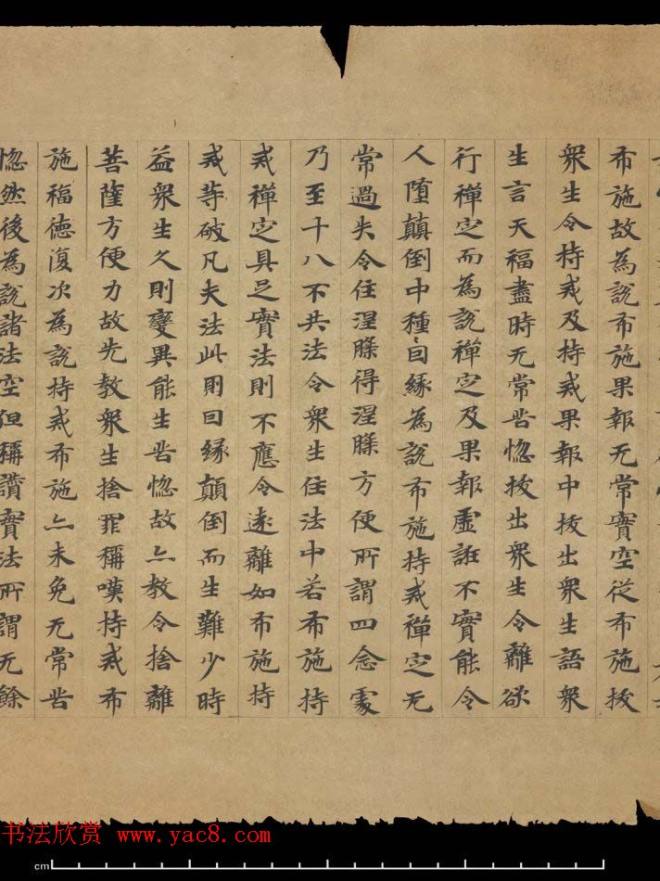 布施故為說布施果報无常實空從布施拔
衆生令持戒及持戒果報中拔出衆生語衆
生言天福盡時无常苦惱拔出衆生令離欲
行禪定而為說禪定及果報虛誑不實能令
人堕顛倒中種〻因緣為說布施持戒禪定无
常過失令住涅槃得涅槃方便所謂四念處
乃至十八不共法令衆生住法中若布施持
戒禪定具足實法則不應令遠離如布施持
戒等破凡夫法此則因緣顛倒而生難少時
益衆生久則變異能生苦惱故亦教令捨離
菩薩方便力故先教衆生捨罪稱嘆持戒布
施福德復次為說持戒布施亦未免无常苦
惱然後為說諸法空但稱讚實法所謂无餘
书法欣赏 www.yac8.com
cm